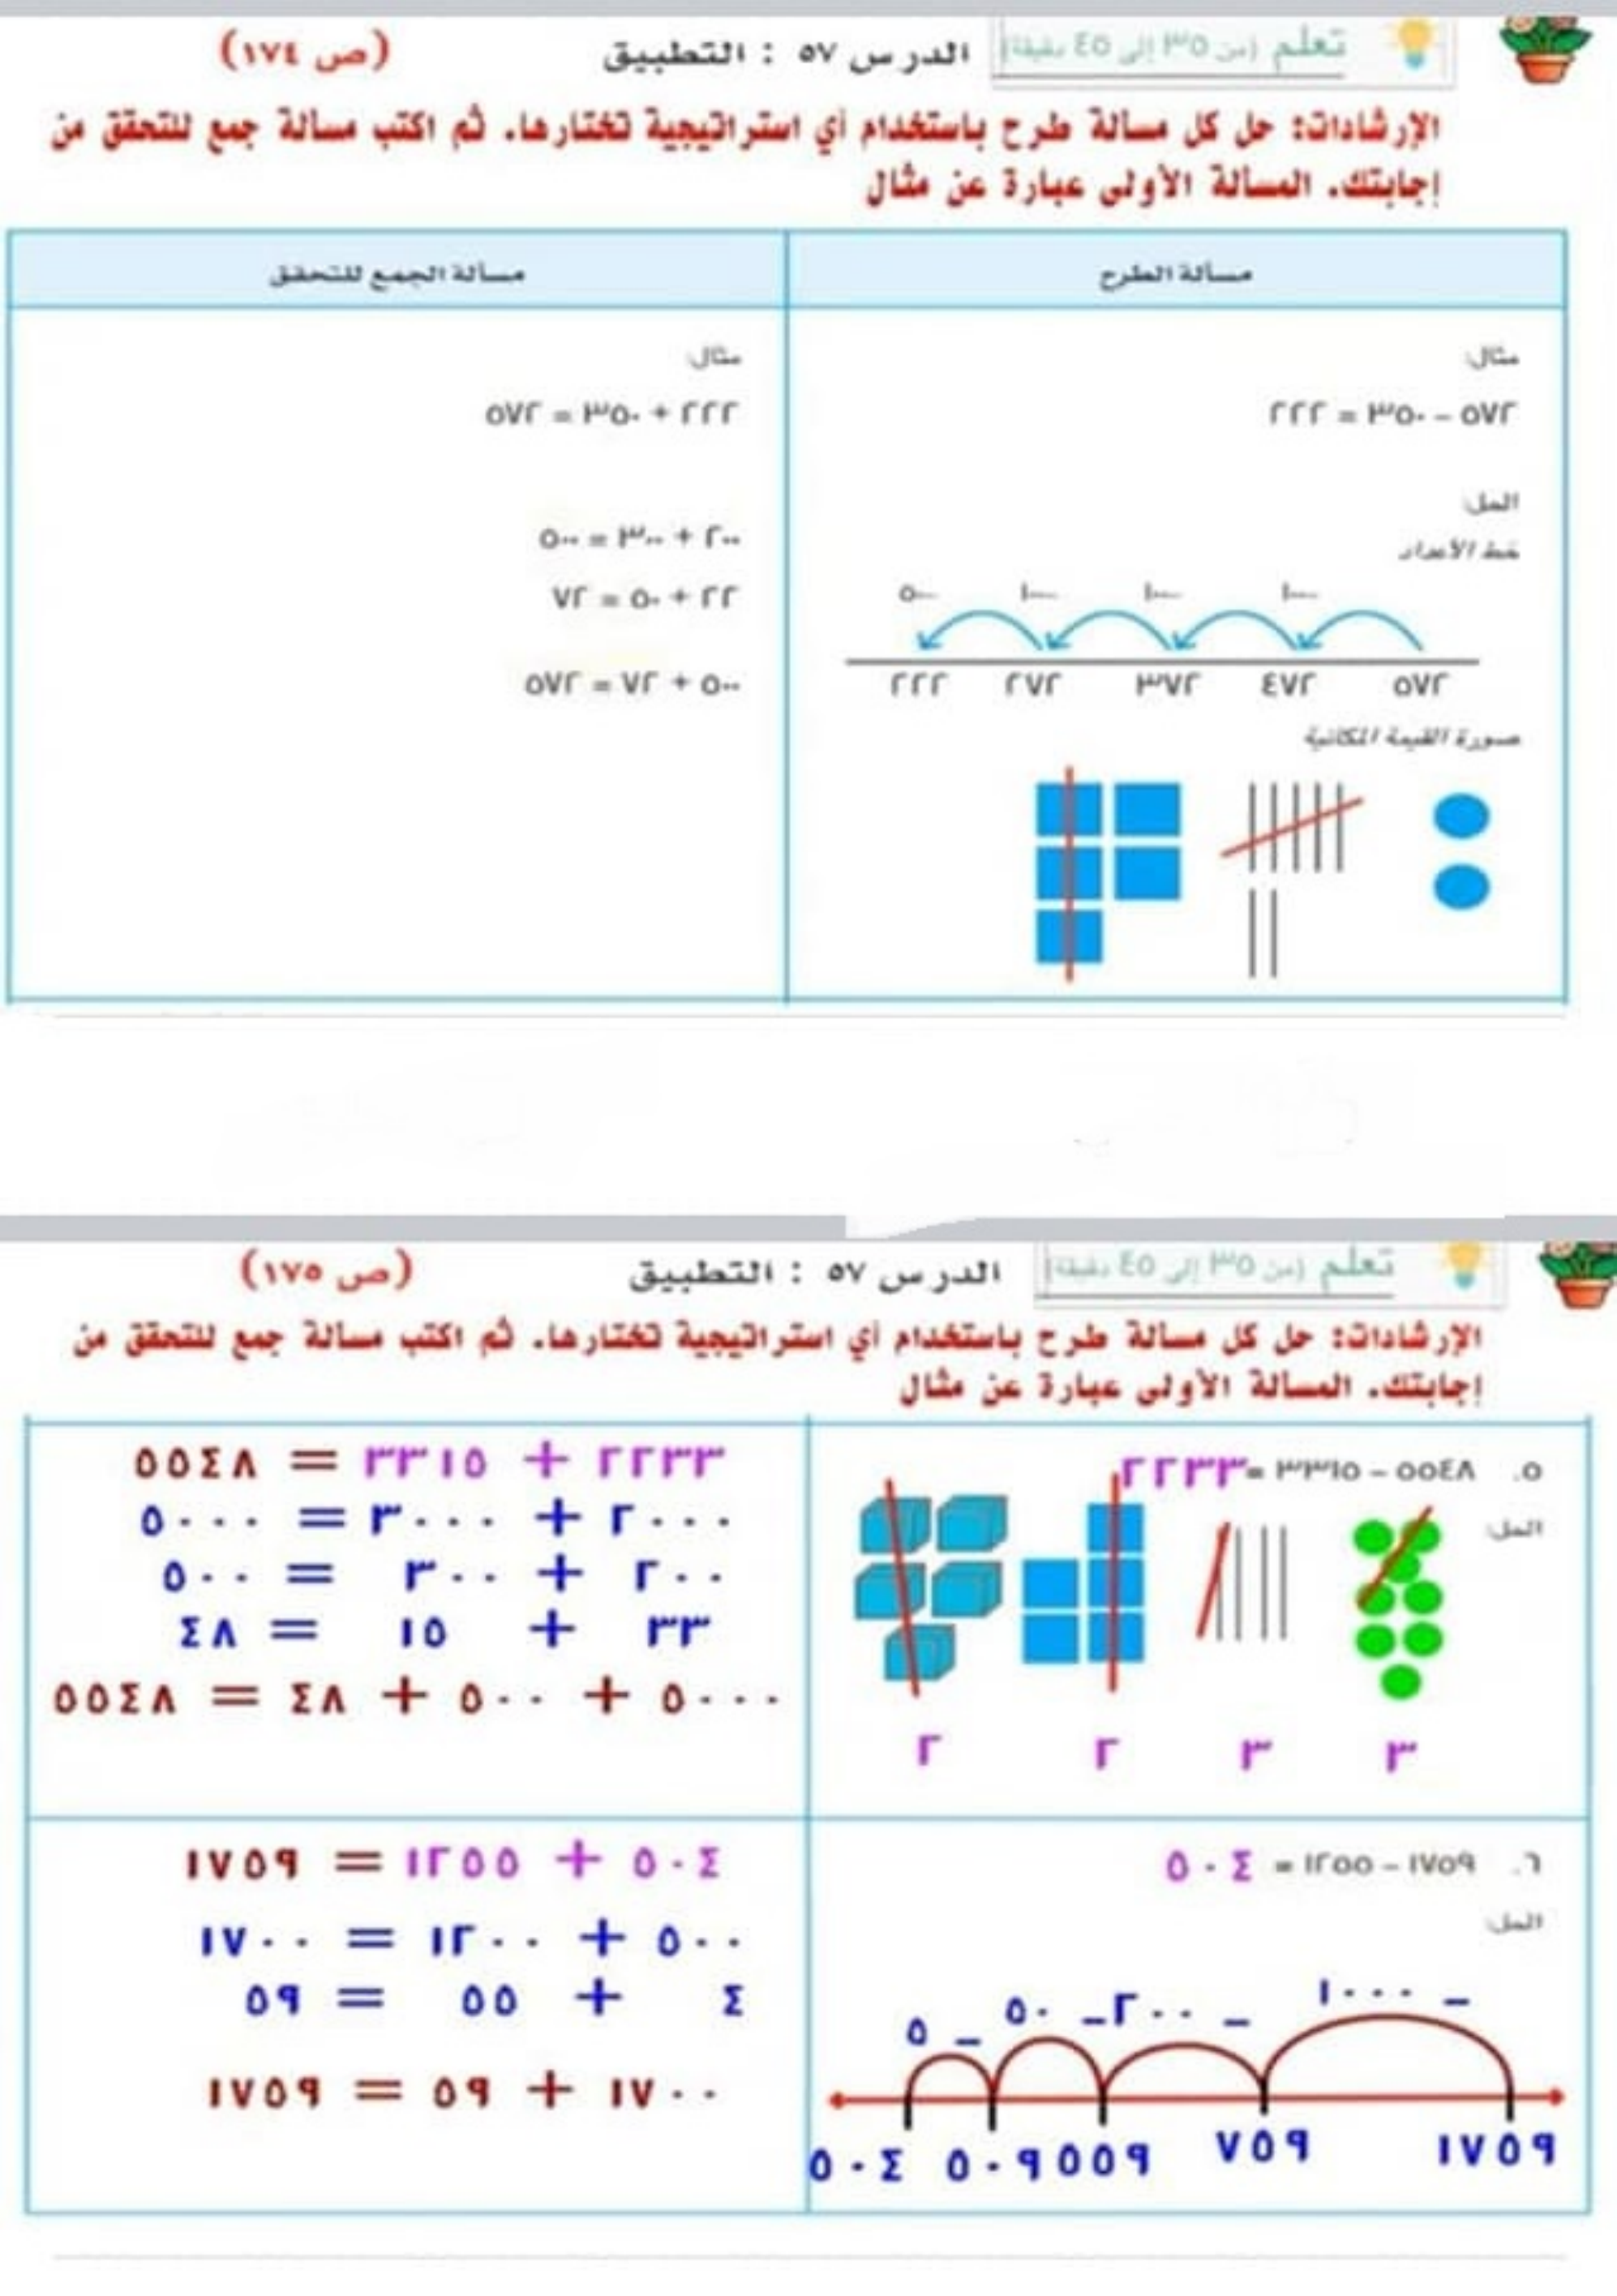 تعلم (من ٣٥ إلى ٤٥ دقيقة) الدرس ٥٧ : التطبيق (ص ١٧٤)
الإرشادات: حل كل مسألة طرح باستخدام أي استراتيجية تختارها. ثم اكتب مسألة جمع للتحقق من
إجابتك. المسألة الأولى عبارة عن مثال
مسألة الطرح
مسألة الجمع للتحقق
مثال:
٥٧٢ – ٣٥٠ = ٢٢٢
الحل:
خط الأعداد
١٠٠– ١٠٠– ١٠٠– ٥٠–
٥٧٢ ٤٧٢ ٣٧٢ ٢٧٢ ٢٢٢
صورة القيمة المكانية
مثال:
٢٢٢ + ٣٥٠ = ٥٧٢
٢٠٠ + ٣٠٠ = ٥٠٠
٢٢ + ٥٠ = ٧٢
٥٠٠ + ٧٢ = ٥٧٢
تعلم (من ٣٥ إلى ٤٥ دقيقة) الدرس ٥٧ : التطبيق (ص ١٧٥)
الإرشادات: حل كل مسألة طرح باستخدام أي استراتيجية تختارها. ثم اكتب مسألة جمع للتحقق من
إجابتك. المسألة الأولى عبارة عن مثال
٥. ٥٥٤٨ – ٣٣١٥ = ٢٢٣٣
الحل:
٣ ٣ ٢ ٢
٢٢٣٣ + ٣٣١٥ = ٥٥٤٨
٢٠٠٠ + ٣٠٠٠ = ٥٠٠٠
٢٠٠ + ٣٠٠ = ٥٠٠
٣٣ + ١٥ = ٤٨
٥٠٠٠ + ٥٠٠ + ٤٨ = ٥٥٤٨
٦. ١٧٥٩ – ١٢٥٥ = ٥٠٤
الحل:
– ١٠٠٠ – ٢٠٠ – ٥٠ – ٥
١٧٥٩ ٧٥٩ ٥٥٩ ٥٠٩ ٥٠٤
٥٠٤ + ١٢٥٥ = ١٧٥٩
٥٠٠ + ١٢٠٠ = ١٧٠٠
٤ + ٥٥ = ٥٩
١٧٠٠ + ٥٩ = ١٧٥٩